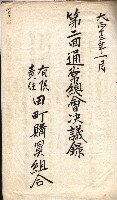 大正十三年一月
第二回通常總會決議錄
有限責任 田町購買組合